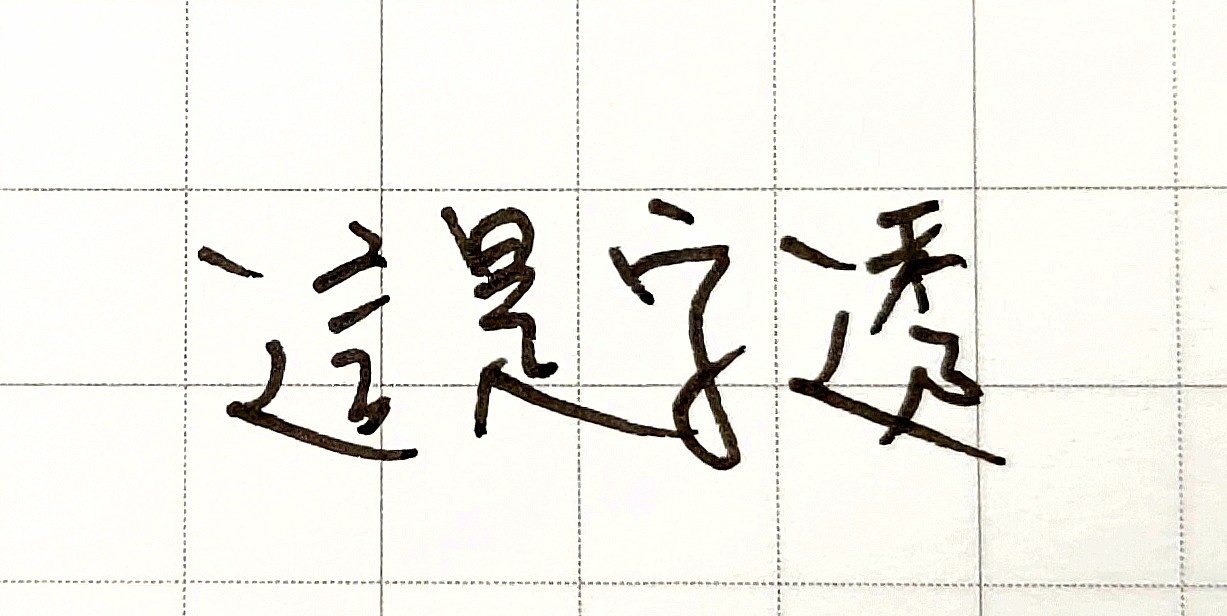 這是字透